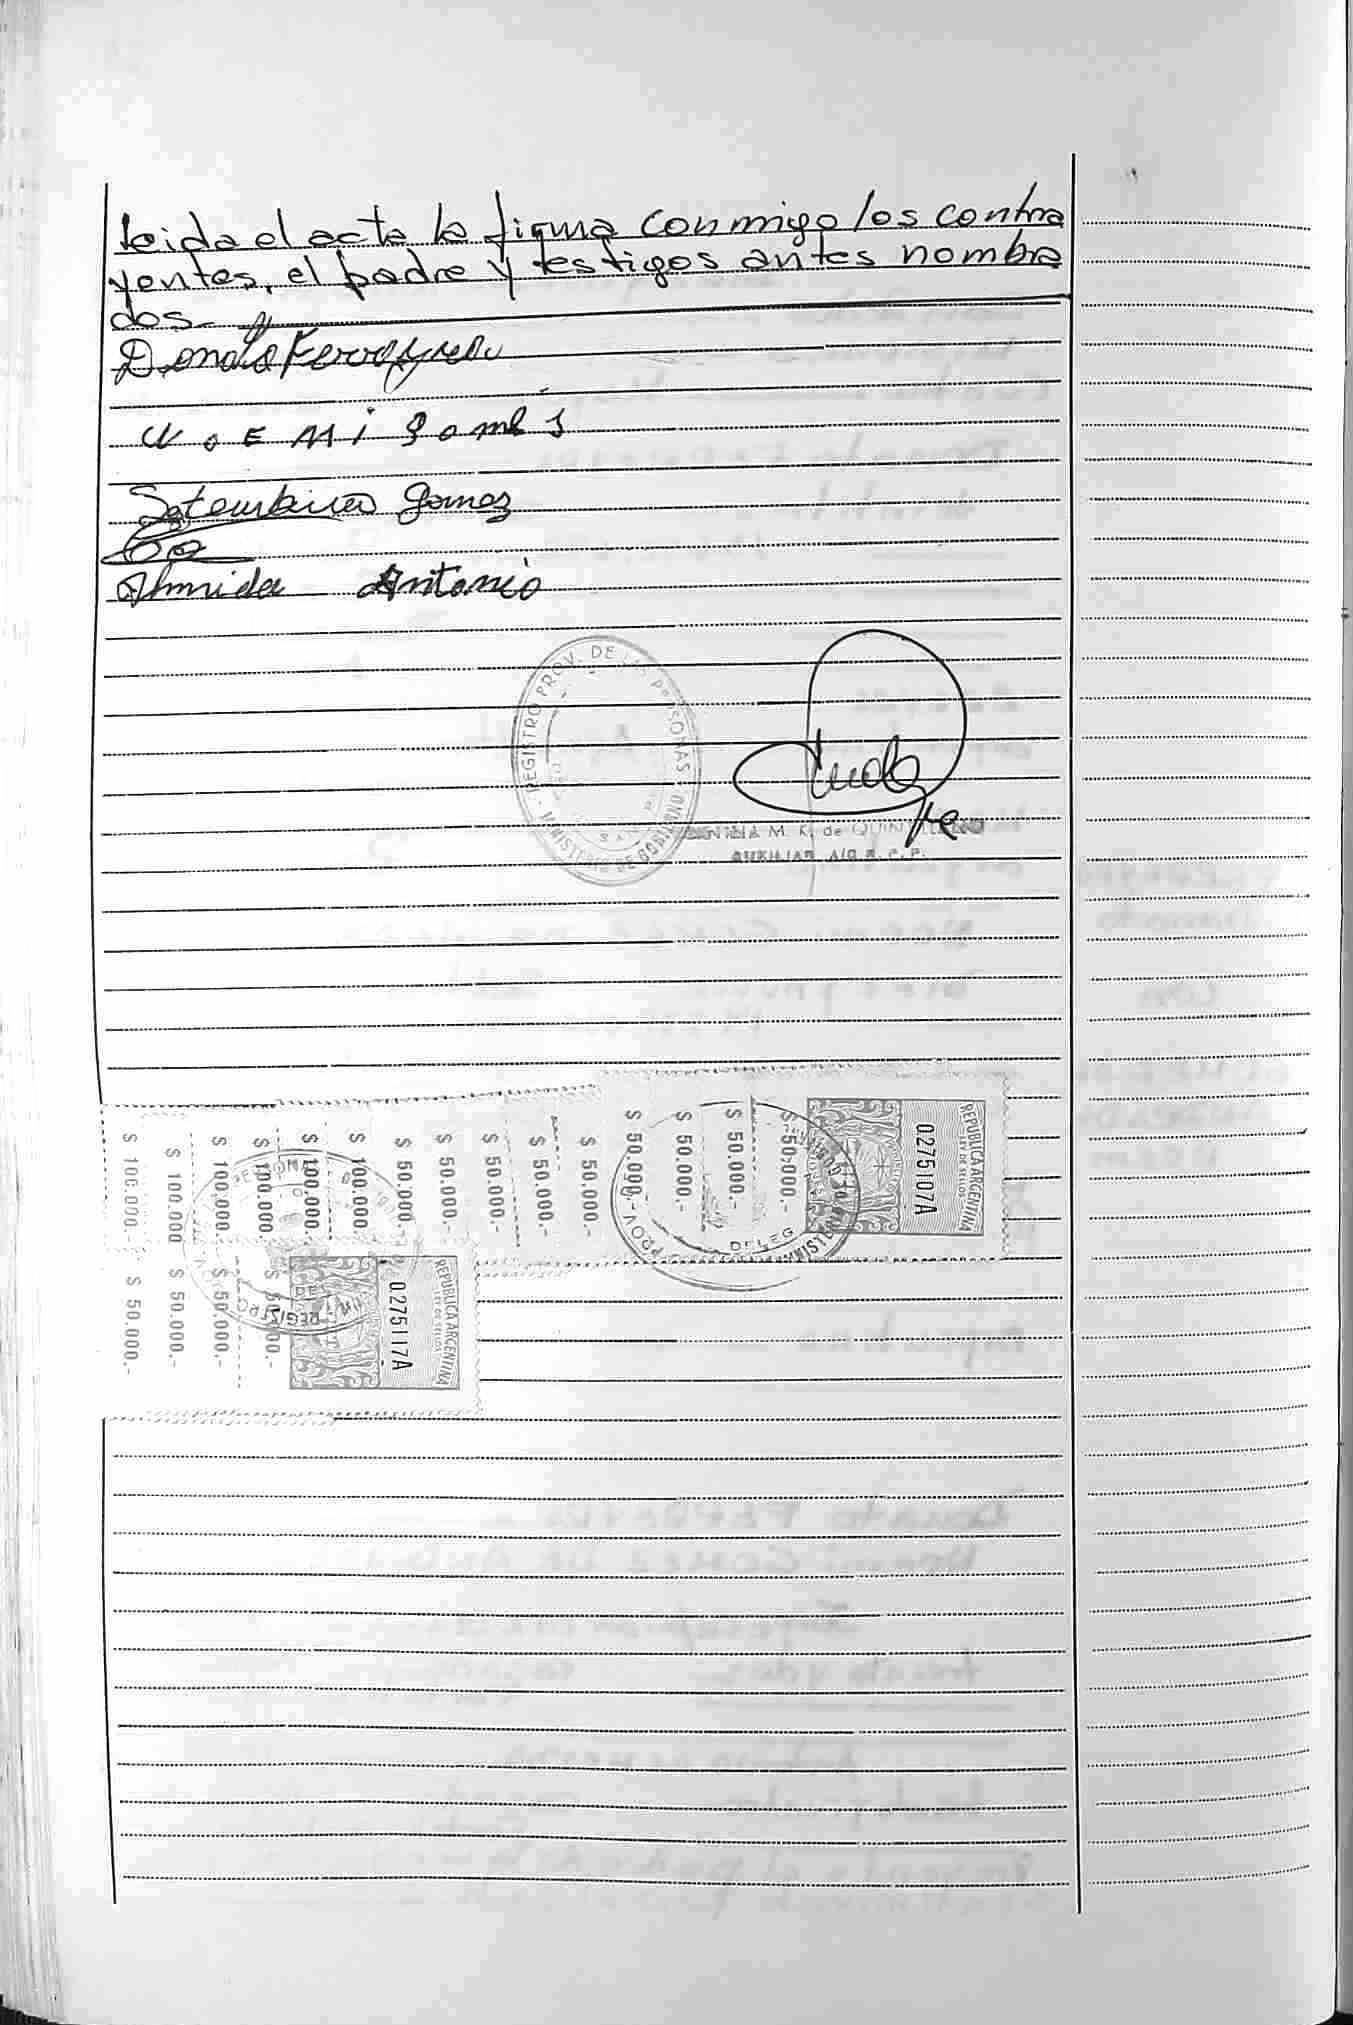 leida el acta la firma conmigo los contra
yentes, el padre y testigos antes nombra
dos.-
Donato
NOEMi gomes
Gomez
Almida Antonio
REGISTRO PROV. DE LAS PERSONAS
MINISTERIO DE GOBIERNO
M. K. de
AUXILIAR A/C R. P. P.
$ 100.000.-
$ 100.000
$ 100.000.-
$ 100.000.-
$ 100.000.-
$ 100.000.-
$ 50.000.-
$ 50.000.-
$ 50.000.-
$ 50.000.-
$ 50.000.-
$ 50.000.-
$ 50.000.-
$ 50.000.-
$ 50.000.-
0275107A
REPUBLICA ARGENTINA
LEY DE SELLOS
$ 50.000.-
$ 50.000.-
$ 50.000.-
0275117A
REPUBLICA ARGENTINA
LEY DE SELLOS